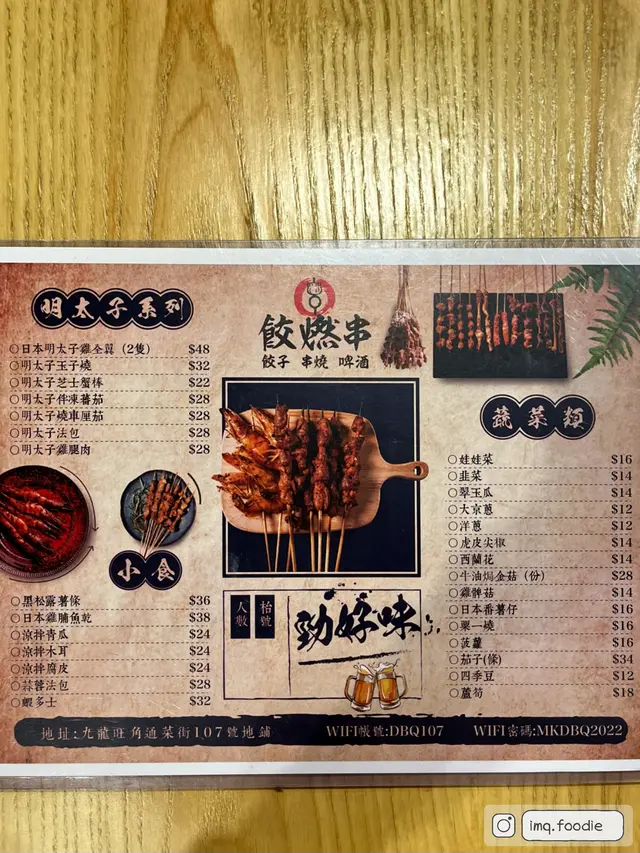 明太子系列
日本明太子雞全翼（2隻） $48
明太子玉子燒 $32
明太子芝士蟹棒 $22
明太子伴凍蕃茄 $28
明太子燒車厘茄 $28
明太子法包 $28
明太子雞腿肉 $28
小食
黑松露薯條 $36
日本雞脯魚乾 $38
涼拌青瓜 $24
涼拌木耳 $24
涼拌腐皮 $24
蒜蓉法包 $28
蝦多士 $32
餃燃串
餃子 串燒 啤酒
人數
枱號
勁好味
蔬菜類
娃娃菜 $16
韭菜 $14
翠玉瓜 $14
大京蔥 $12
洋蔥 $12
虎皮尖椒 $14
西蘭花 $14
牛油焗金菇（份） $28
雞髀菇 $14
日本番薯仔 $16
粟一燒 $16
菠蘿 $14
茄子(條) $34
四季豆 $12
蘆筍 $18
地址:九龍旺角通菜街107號地鋪
WIFI帳號:DBQ107
WIFI密碼:MKDBQ2022
imq.foodie